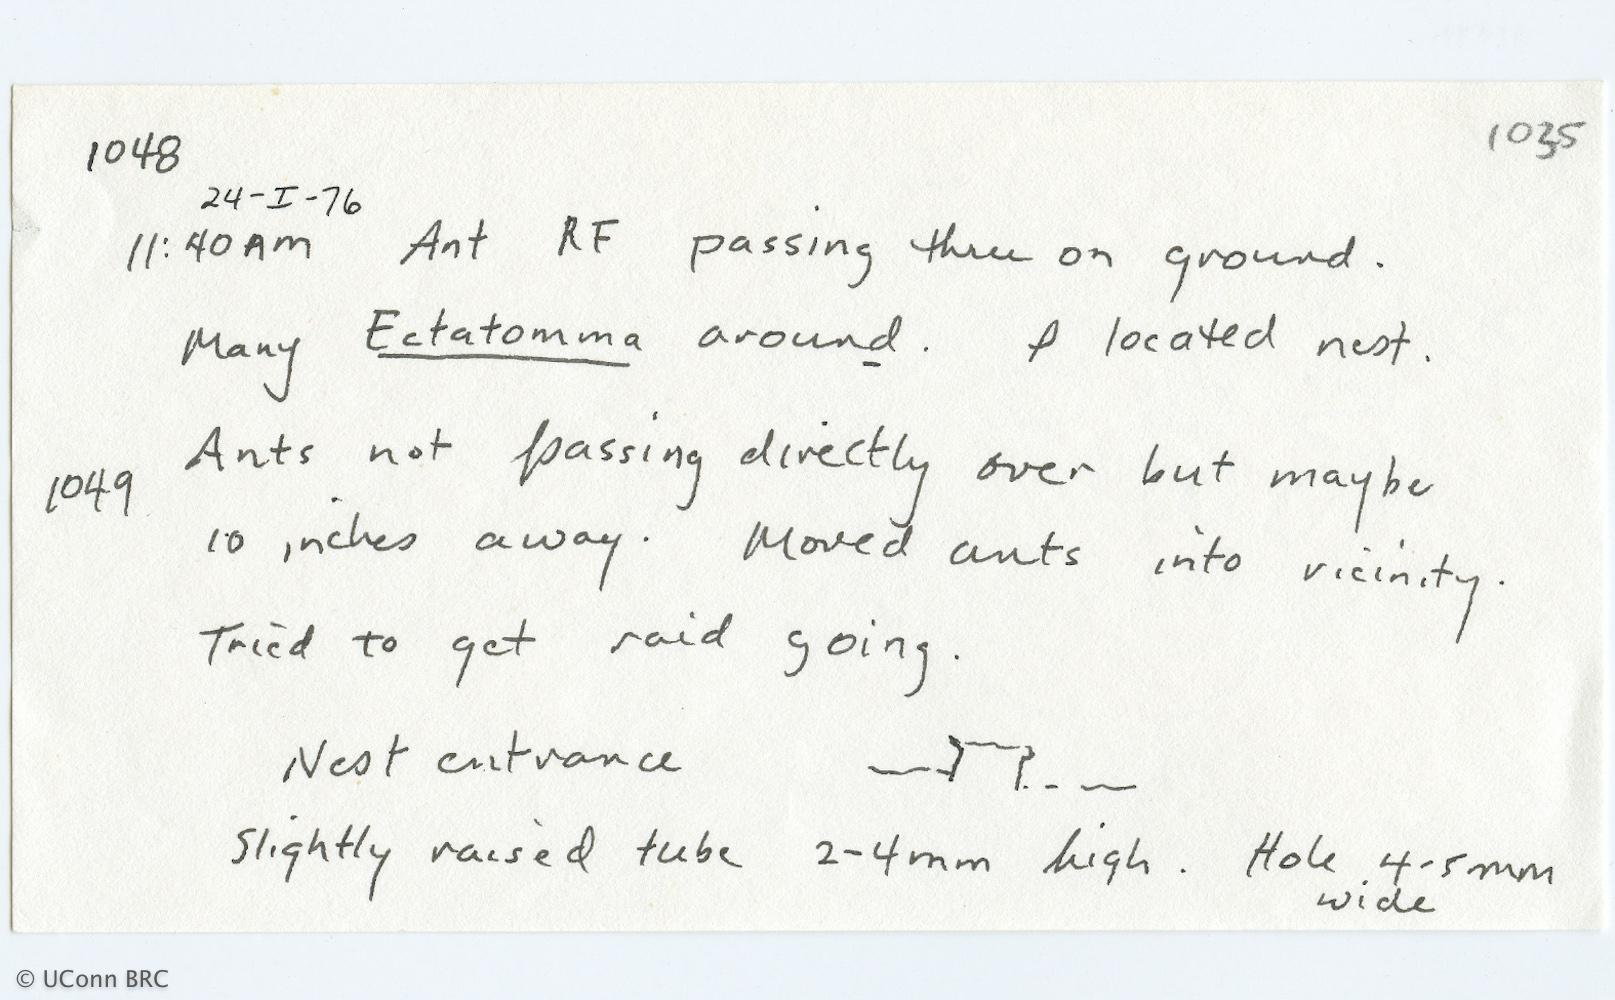 1048
1035
24-I-76
11:40AM Ant RF passing thru on ground.
Many Ectatomma around. I located nest.
Ants not passing directly over but maybe
1049
10 inches away. Moved ants into vicinity.
Tried to get raid going.
Nest entrance
Slightly raised tube 2-4mm high. Hole 4-5mm
wide
© UConn BRC